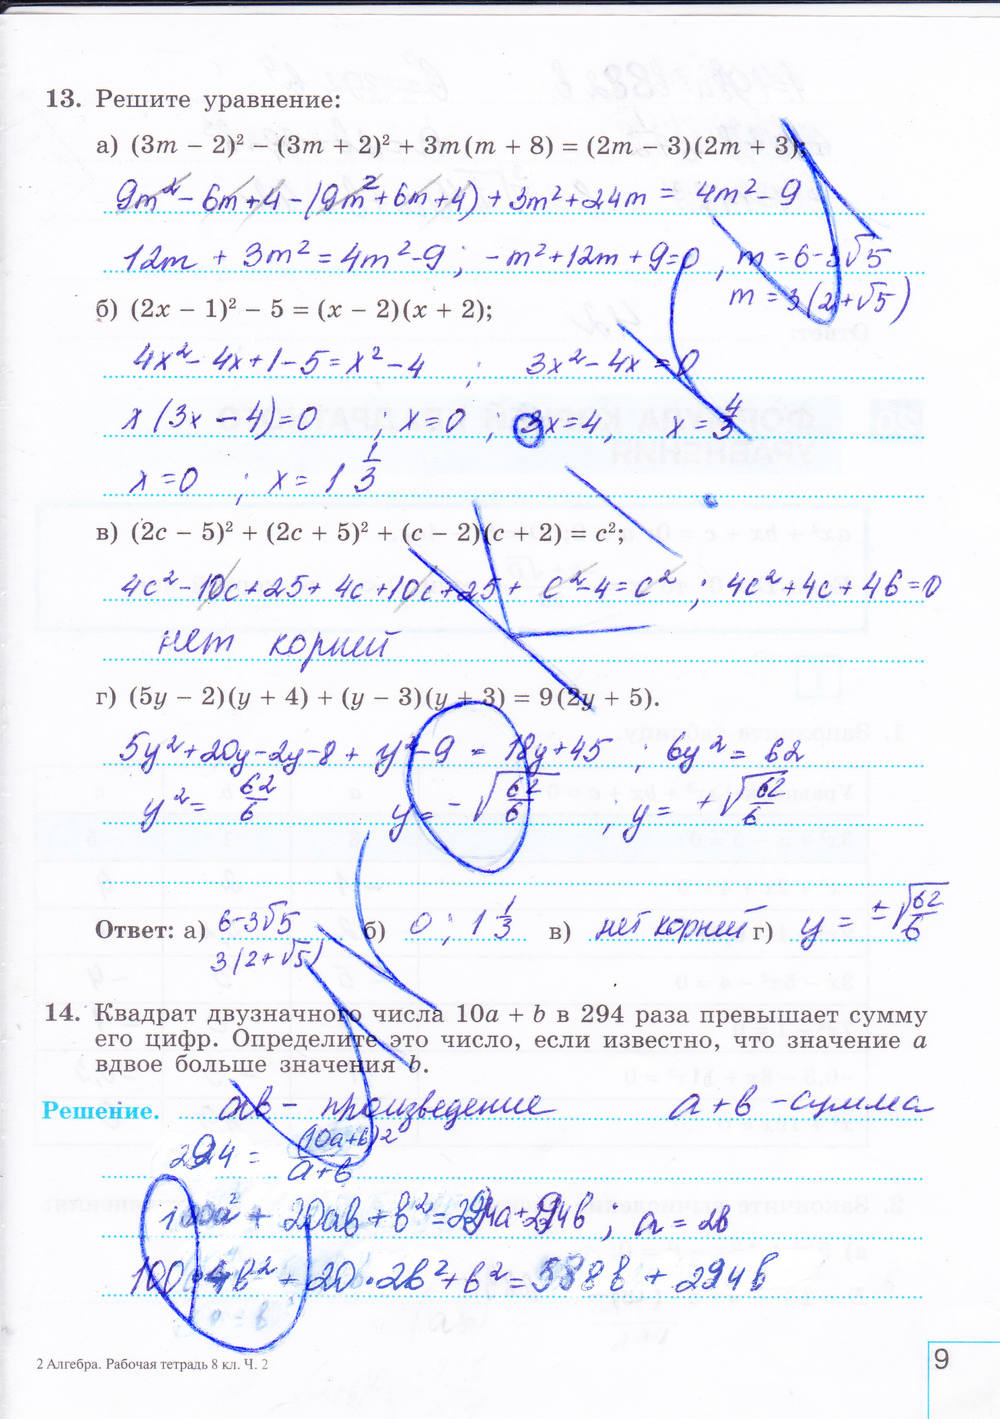 13. Решите уравнение:
а) (3m − 2)² − (3m + 2)² + 3m(m + 8) = (2m − 3)(2m + 3);
9m² − 6m + 4 − (9m² + 6m + 4) + 3m² + 24m = 4m² − 9
12m + 3m² = 4m² − 9 ; − m² + 12m + 9 = 0 , m = 6 − 3√5
m = 3(2+√5)
б) (2x − 1)² − 5 = (x − 2)(x + 2);
4x² − 4x + 1 − 5 = x² − 4 ; 3x² − 4x = 0
x (3x − 4) = 0 ; x = 0 ; 3x = 4, x = 4/3
x = 0 ; x = 1 1/3
в) (2c − 5)² + (2c + 5)² + (c − 2)(c + 2) = c²;
4c² − 10c + 25 + 4c + 10c + 25 + c² − 4 = c² ; 4c² + 4c + 46 = 0
нет корней
г) (5y − 2)(y + 4) + (y − 3)(y + 3) = 9(2y + 5).
5y² + 20y − 2y − 8 + y² − 9 = 18y + 45 ; 6y² = 62
y² = 62/6 y = − √62/6 ; y = + √62/6
Ответ: а) 6−3√5 б) 0 ; 1 1/3 в) нет корней г) y = ± √62/6
3(2+√5)
14. Квадрат двузначного числа 10a + b в 294 раза превышает сумму
его цифр. Определите это число, если известно, что значение a
вдвое больше значения b.
Решение. ab − произведение a + b − сумма
294 = (10a+b)²/a+b
100a² + 20ab + b² = 294a + 294b ; a = 2b
100·4b² + 20·2b² + b² = 588b + 294b
2 Алгебра. Рабочая тетрадь 8 кл. Ч. 2
9